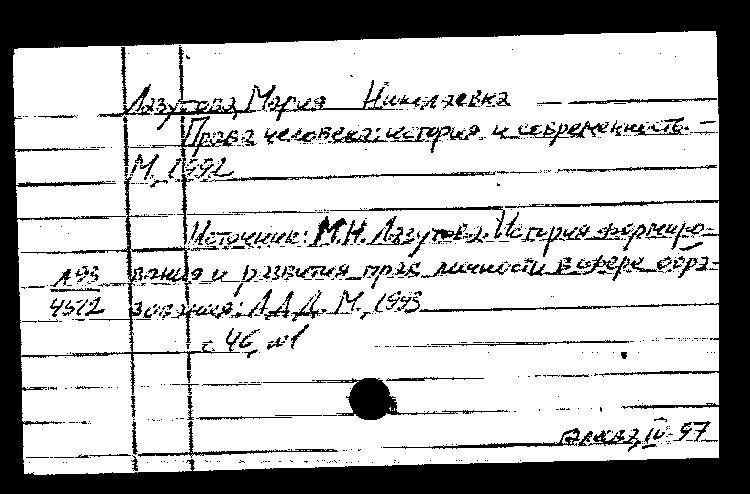 Лазутова, Мария Николаевна
Права человека: история и современность. -
М., 1992
Источник: М.Н. Лазутова. История формиро-
А93 вания и развития прав личности в сфере обра-
4572 зования: А.Д.Д. М., 1993
с. 46, №1
IV-97